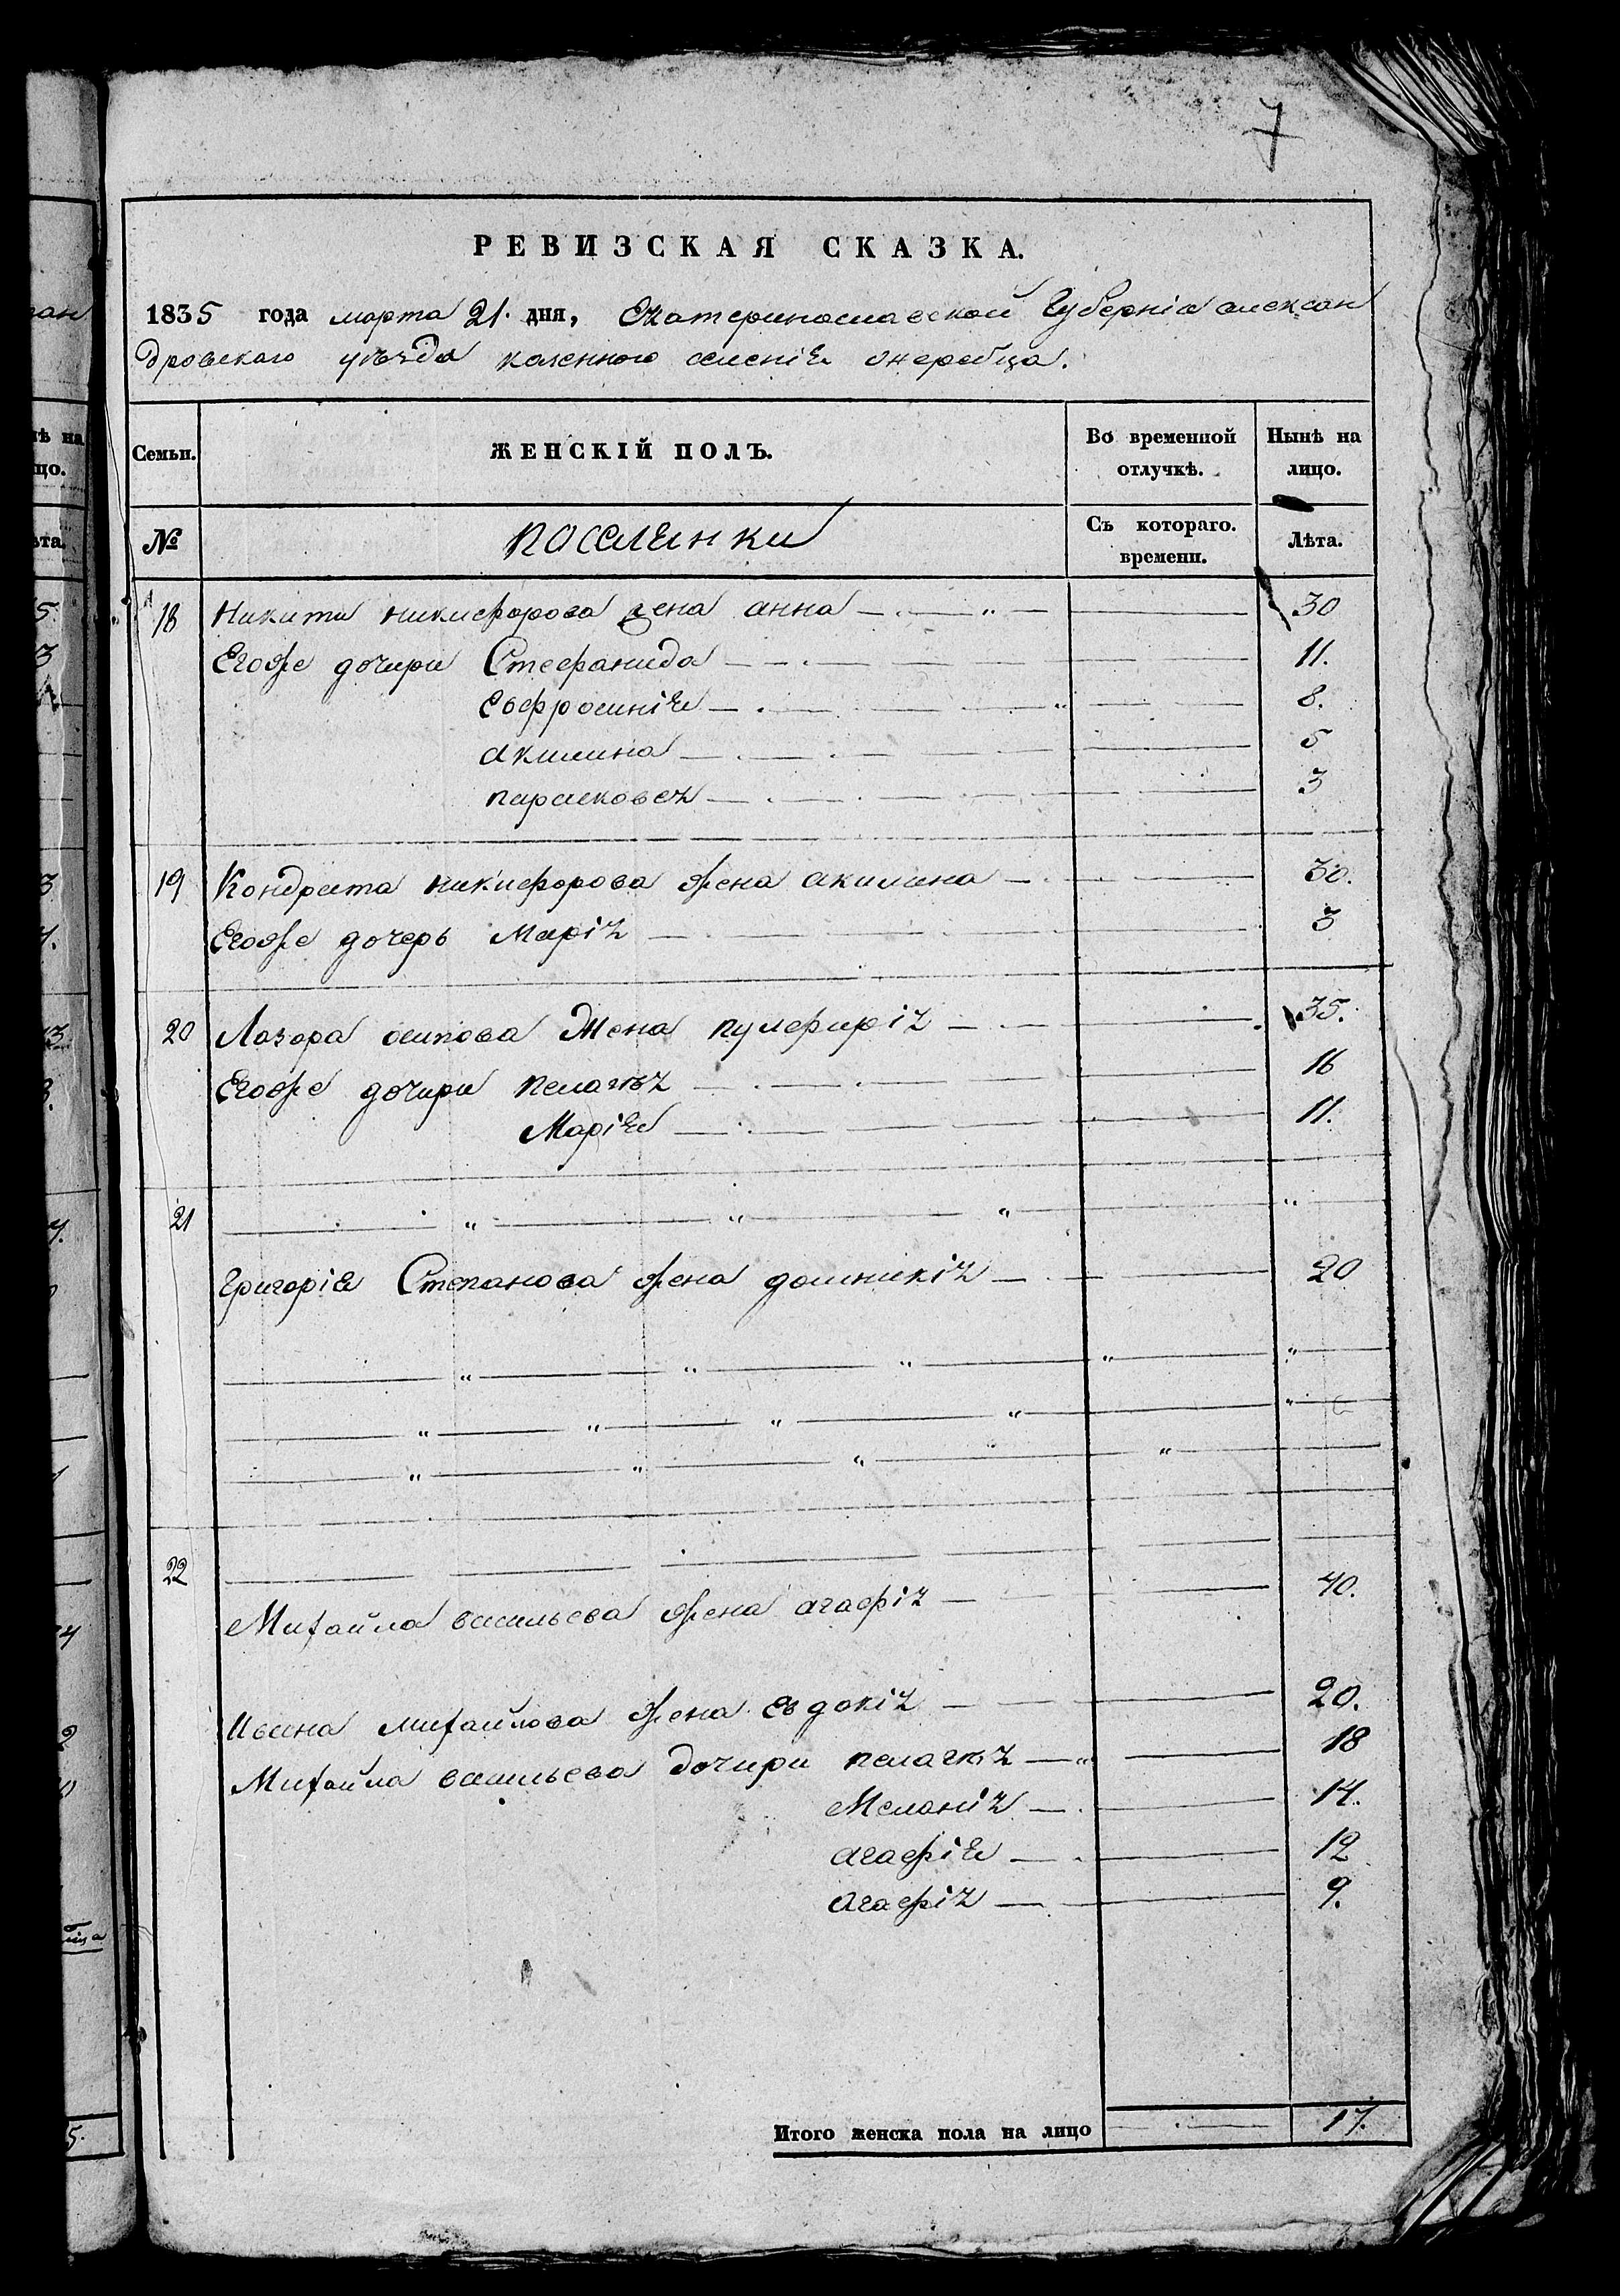 7
РЕВИЗСКАЯ СКАЗКА.
1835 года марта 21. дня, Екатеринославской Губерніи алексан
дровскаго уѣзда казенного селенія жеребца.
Семьи. ЖЕНСКІЙ ПОЛЪ. Во временной отлучкѣ. Нынѣ на лицо.
№ поселянки Съ котораго. времени. Лѣта.
18 Никити никифорова жена анна 30
Егоже дочири Стефанида 11.
Евфросинія 8.
акилина 5
парасковея 3
19 Кондрата никифорова жена акилина 30.
Егоже дочерь Марія 3
20 Лазора осипова Жена пулферія 35.
Егоже дочири пелагѣя 16
Марія 11.
21
Григорія Степанова жена домникія 20
22
Михайла васильева жена агафія 40.
Ивана михайлова жена евдокія 20.
Михайла васильева дочири пелагѣя 18
Меланія 14.
агафія 12
агафія 9.
Итого женска пола на лицо 17.